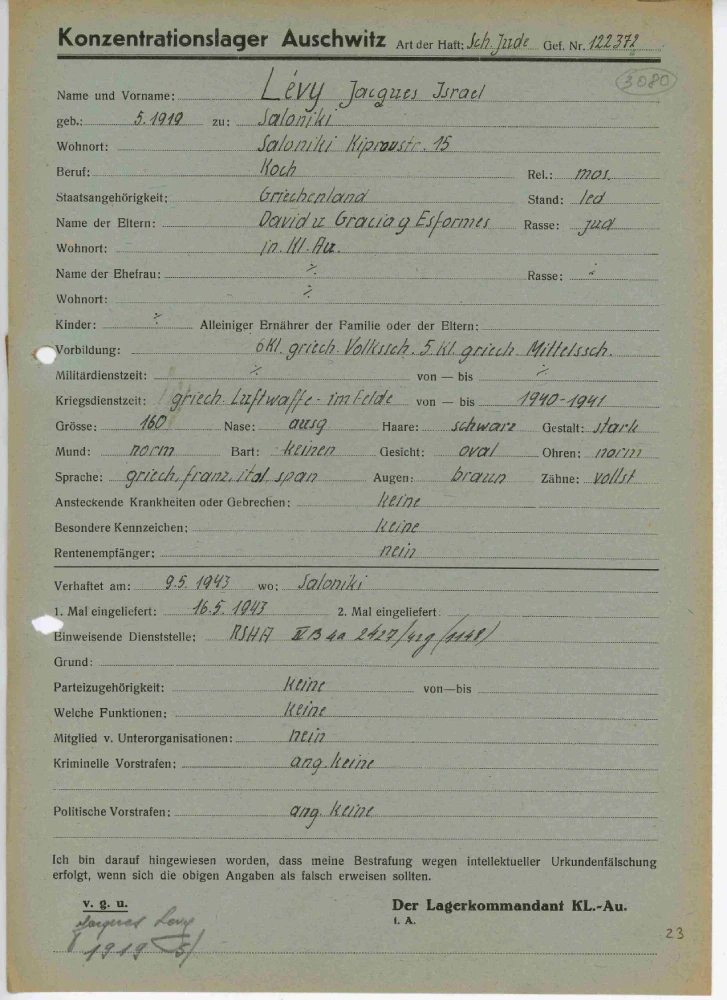 Konzentrationslager Auschwitz Art der Haft: Sch. Jude Gef. Nr. 122372
3080
Name und Vorname: Lévy Jacques Israel
geb.: 5.1919 zu: Saloniki
Wohnort: Saloniki 15
Beruf: Koch Rel.: mos.
Staatsangehörigkeit: Griechenland Stand: led
Name der Eltern: David u Gracia g Esformes Rasse: jüd
Wohnort: in Kl. Au.
Name der Ehefrau: ·/. Rasse: "
Wohnort: ·/.
Kinder: ·/. Alleiniger Ernährer der Familie oder der Eltern:
Vorbildung: 6 Kl. griech. Volkssch. 5. Kl. griech Mittelssch.
Militärdienstzeit: ·/. von — bis ·/.
Kriegsdienstzeit: griech. Luftwaffe - im Felde von — bis 1940-1941
Grösse: 160 Nase: ausg Haare: schwarz Gestalt: stark
Mund: norm Bart: keinen Gesicht: oval Ohren: norm
Sprache: griech, franz, ital span Augen: braun Zähne: vollst
Ansteckende Krankheiten oder Gebrechen: keine
Besondere Kennzeichen: keine
Rentenempfänger: nein
Verhaftet am: 9.5. 1943 wo: Saloniki
1. Mal eingeliefert: 16.5. 1943 2. Mal eingeliefert:
Einweisende Dienststelle: RSHA IV B 4a 2427/42g (1148)
Grund:
Parteizugehörigkeit: keine von—bis
Welche Funktionen: keine
Mitglied v. Unterorganisationen: nein
Kriminelle Vorstrafen: ang. keine
Politische Vorstrafen: ang. keine
Ich bin darauf hingewiesen worden, dass meine Bestrafung wegen intellektueller Urkundenfälschung
erfolgt, wenn sich die obigen Angaben als falsch erweisen sollten.
v. g. u. Der Lagerkommandant KL.-Au.
I. A.
Jacques Levy
1919 5/
23